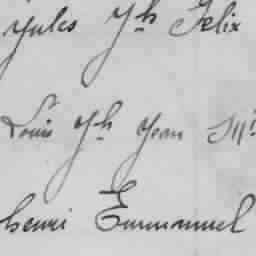 Jules Jh Felix
Louis Jh Jean Mi
henri Emmanuel